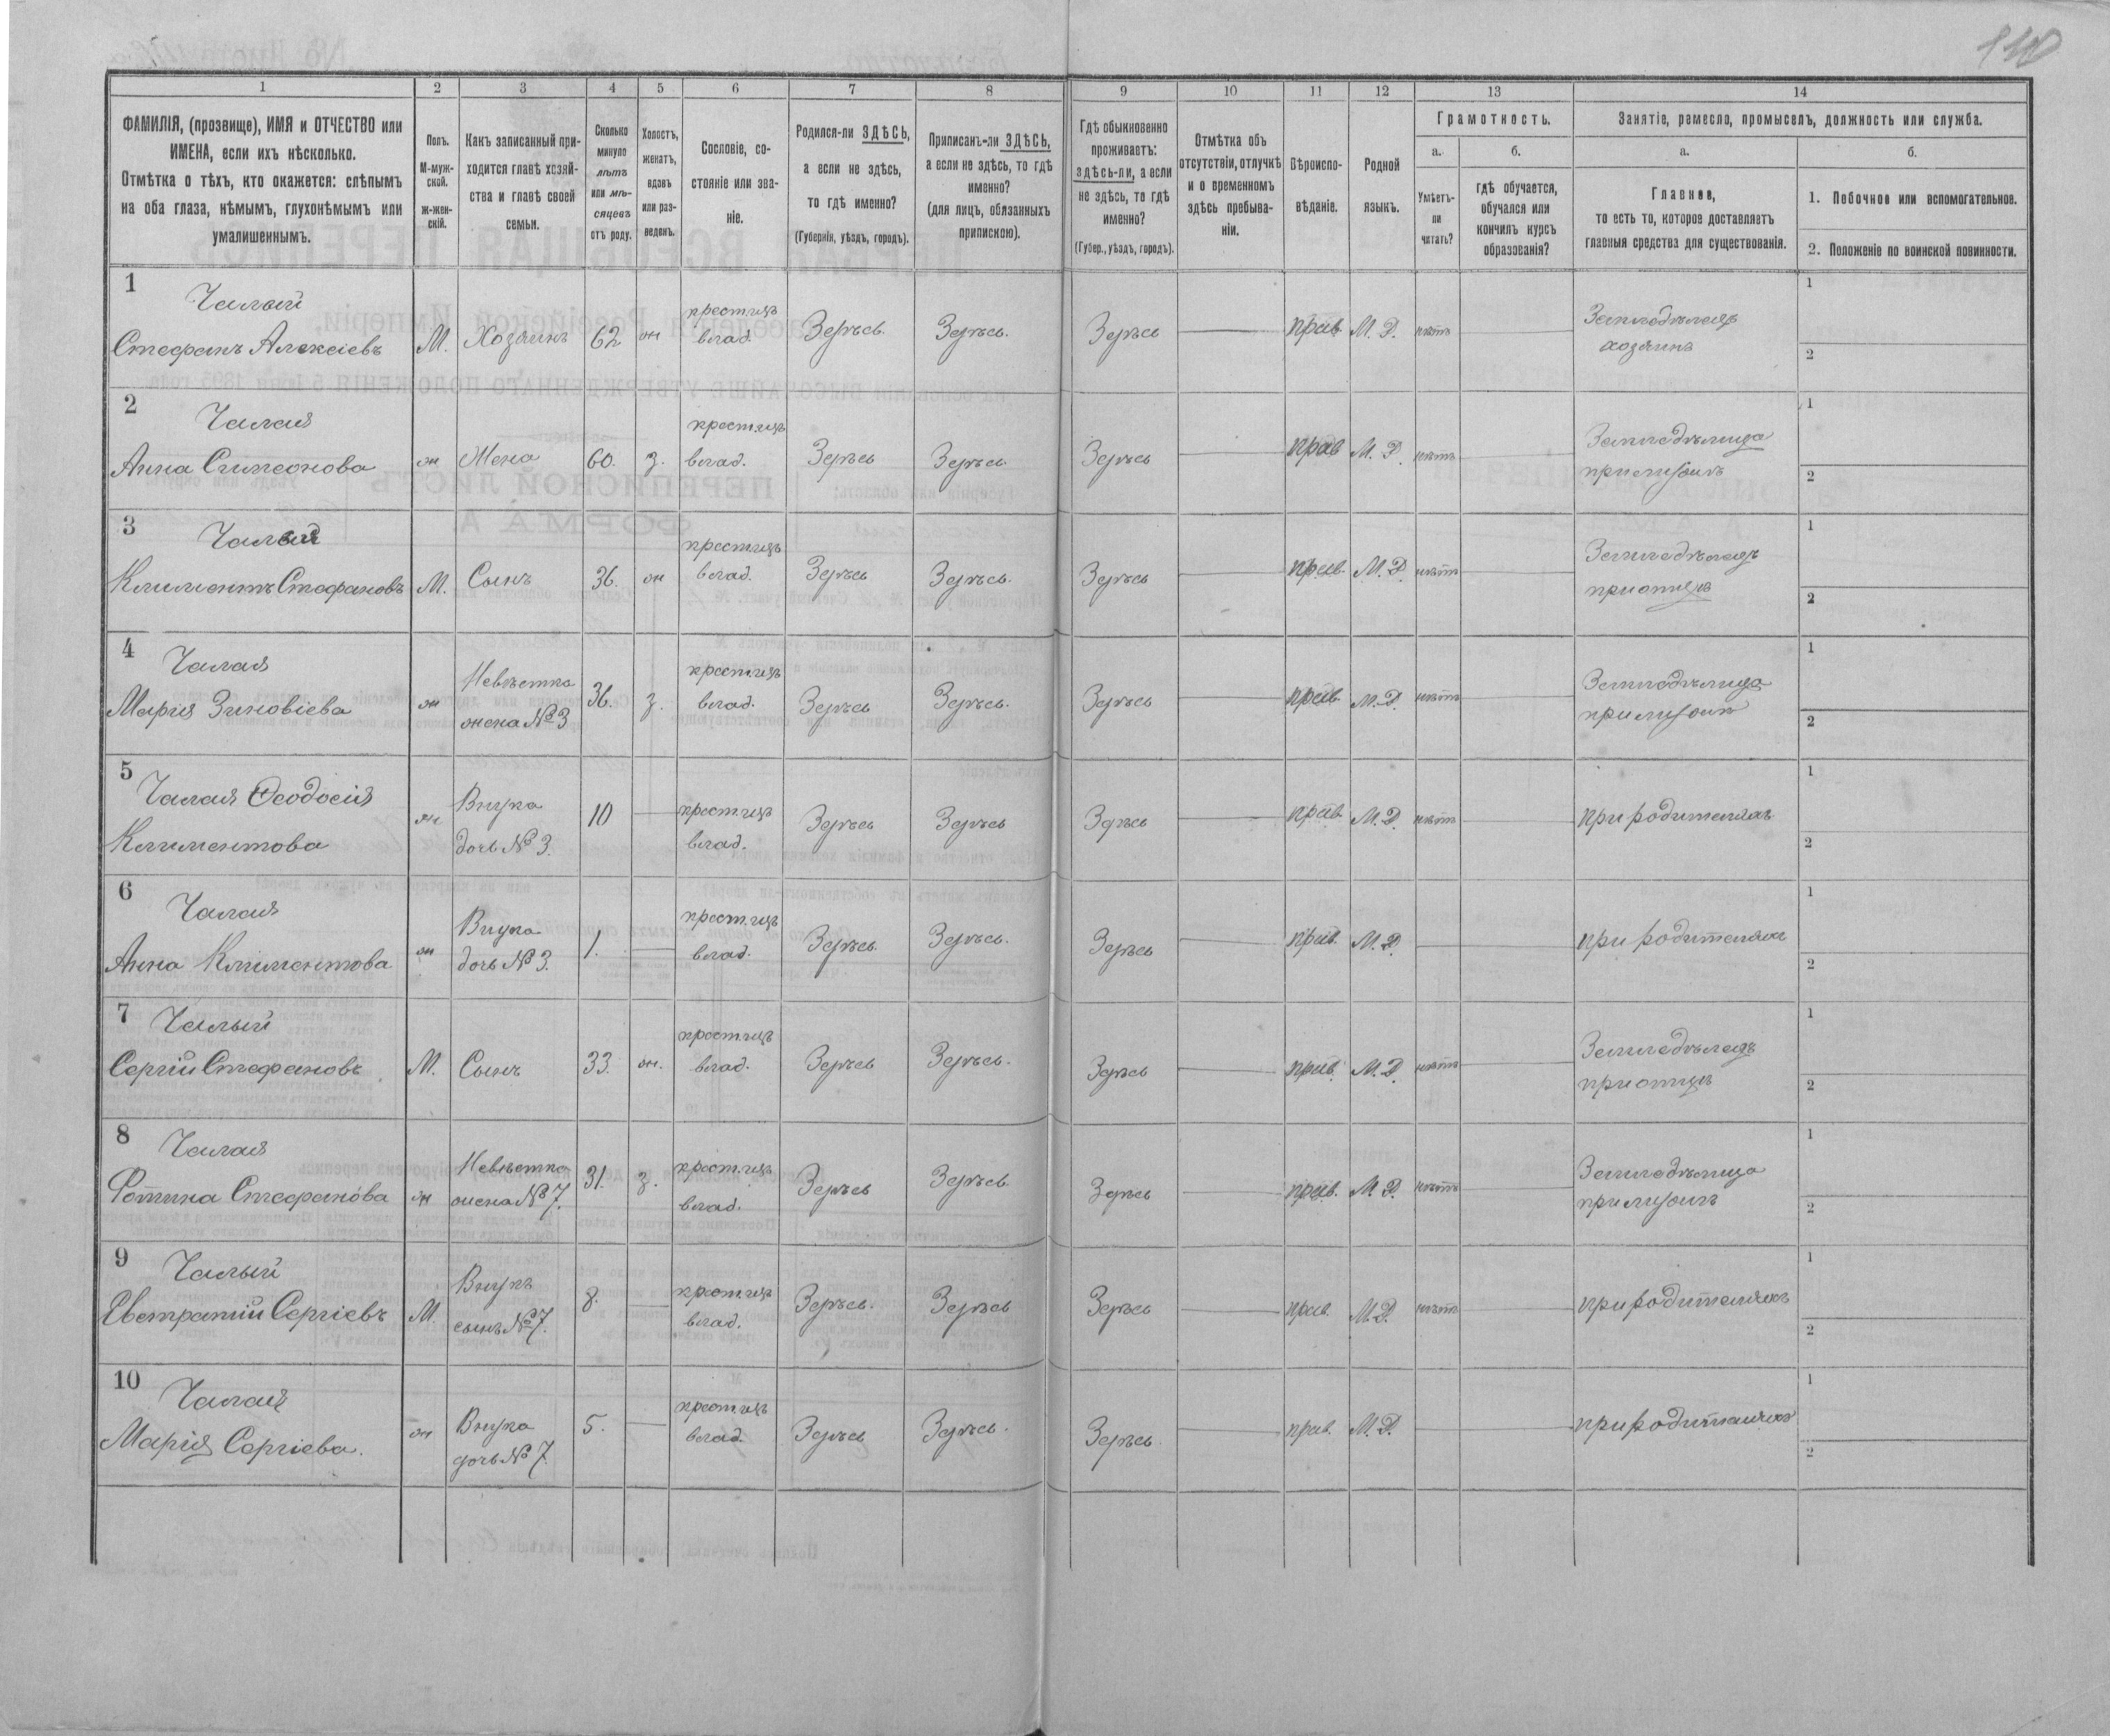 140
1 2 3 4 5 6 7 8 9 10 11 12 13 14
ФАМИЛІЯ, (прозвище), ИМЯ и ОТЧЕСТВО или
ИМЕНА, если ихъ нѣсколько.
Отмѣтка о тѣхъ, кто окажется: слѣпымъ
на оба глаза, нѣмымъ, глухонѣмымъ или
умалишеннымъ.
Полъ.
М-муж-
ской.
ж-жен-
скій.
Какъ записанный при-
ходится главѣ хозяй-
ства и главѣ своей
семьи.
Сколько
минуло
лѣтъ
или мѣ-
сяцевъ
отъ роду.
Холостъ,
женатъ,
вдовъ
или раз-
веденъ.
Сословіе, со-
стояніе или зва-
ніе.
Родился-ли ЗДѢСЬ,
а если не здѣсь,
то гдѣ именно?
(Губернія, уѣздъ, городъ).
Приписанъ-ли ЗДѢСЬ,
а если не здѣсь, то гдѣ
именно?
(для лицъ, обязанныхъ
припискою).
Гдѣ обыкновенно
проживаетъ:
здѣсь-ли, а если
не здѣсь, то гдѣ
именно?
(Губер., уѣздъ, городъ).
Отмѣтка объ
отсутствіи, отлучкѣ
и о временномъ
здѣсь пребыва-
ніи.
Вѣроиспо-
вѣданіе.
Родной
языкъ.
Грамотность.
а.
Умѣетъ-
ли
читать?
б.
гдѣ обучается,
обучался или
кончилъ курсъ
образованія?
Занятіе, ремесло, промыселъ, должность или служба.
а.
Главное,
то есть то, которое доставляетъ
главныя средства для существованія.
б.
1. Побочное или вспомогательное.
2. Положеніе по воинской повинности.
1
Чалый
Стефанъ Алексіевъ М. Хозяинъ 62 ж крест. изъ влад. Здѣсь Здѣсь. Здѣсь прав. М. Р. нѣтъ Земледѣлецъ хозяинъ 1 2
2
Чалая
Анна Симеонова ж Жена 60. з. крест. изъ влад. Здѣсь Здѣсь. Здѣсь прав М. Р. нѣтъ Земледѣлица при мужѣ 1 2
3
Чалый
Климентъ Стефановъ М. Сынъ 36. ж крест. изъ влад. Здѣсь Здѣсь. Здѣсь прав. М. Р. нѣтъ Земледѣлецъ при отцѣ 1 2
4
Чалая
Марія Зиновіева ж Невѣстка жена №3 36. з. крест. изъ влад. Здѣсь Здѣсь. Здѣсь прав. М. Р. нѣтъ Земледѣлица при мужѣ 1 2
5
Чалая Ѳеодосія
Климентова ж Внука дочь №3. 10 крест. изъ влад. Здѣсь Здѣсь Здѣсь прав. М. Р. нѣтъ при родителяхъ 1 2
6
Чалая
Анна Климентова ж Внука дочь №3. 1. крест. изъ влад. Здѣсь Здѣсь. Здѣсь прав. М. Р. при родителяхъ 1 2
7
Чалый
Сергій Стефановъ М. Сынъ 33. ж. крест. изъ влад. Здѣсь Здѣсь. Здѣсь прав. М. Р. нѣтъ Земледѣлецъ при отцѣ 1 2
8
Чалая
Фотина Стефанова ж Невѣстка жена №7. 31. з. крест. изъ влад. Здѣсь Здѣсь Здѣсь прав. М. Р. нѣтъ Земледѣлица при мужѣ 1 2
9
Чалый
Евстратій Сергіевъ М. Внукъ сынъ №7. 8. крест. изъ влад. Здѣсь. Здѣсь Здѣсь прав. М. Р. нѣтъ при родителяхъ 1 2
10
Чалая
Марія Сергіева. ж Внука дочь №7. 5. крест. изъ влад. Здѣсь Здѣсь. Здѣсь прав. М. Р. при родителяхъ 1 2